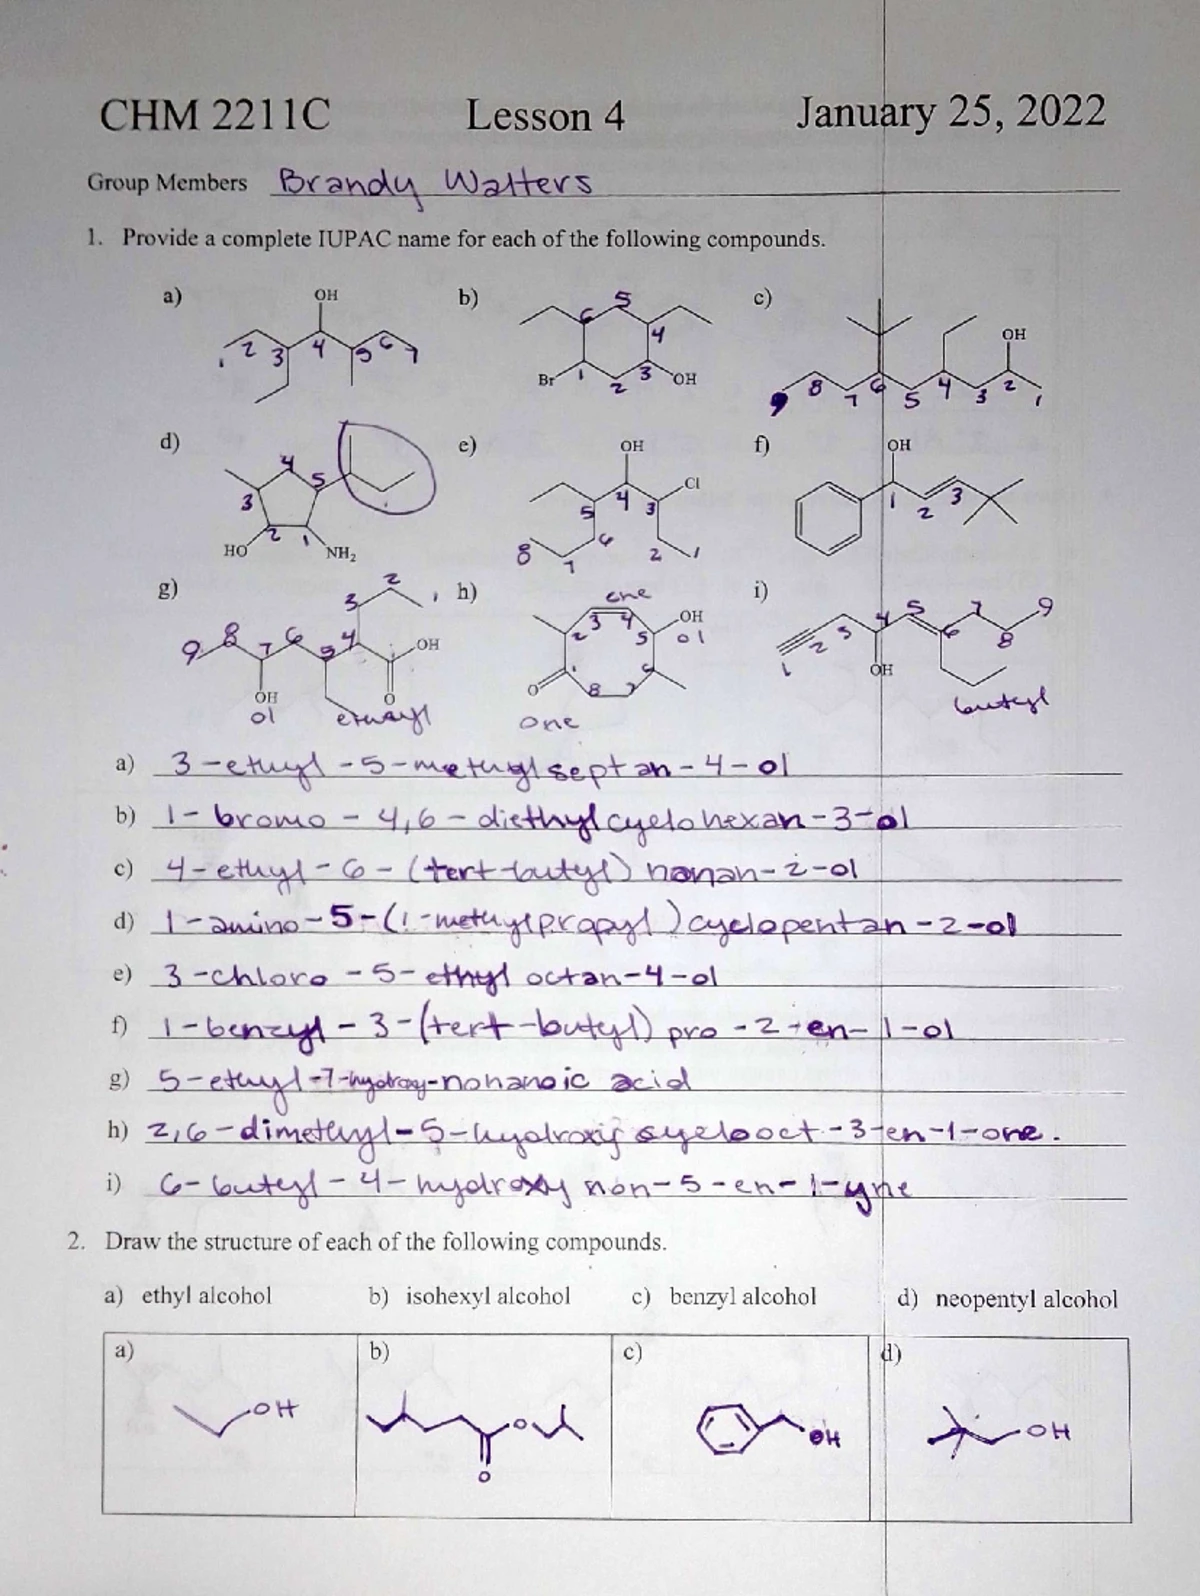 CHM 2211C Lesson 4 January 25, 2022
Group Members Brandy Walters
1. Provide a complete IUPAC name for each of the following compounds.
a) OH 1 2 3 4 5 6 7
b) 6 5 4 Br 1 2 3 OH
c) OH 9 8 7 6 5 4 3 2 1
d) 4 5 3 2 1 HO NH2
e) OH Cl 5 4 3 6 8 7 2 1
f) OH 1 2 3
g) 3 2 1 9 8 7 6 5 4 OH OH O ol ethayl
h) ene 3 4 OH 2 5 ol 1 6 O 8 7 one
i) 1 2 3 4 5 6 7 8 9 OH butyl
a) 3-ethyl-5-methylseptan-4-ol
b) 1-bromo-4,6-diethylcyclohexan-3-ol
c) 4-ethyl-6-(tert-butyl)nonan-2-ol
d) 1-amino-5-(1-methylpropyl)cyclopentan-2-ol
e) 3-chloro-5-ethyl octan-4-ol
f) 1-benzyl-3-(tert-butyl) pro-2-en-1-ol
g) 5-ethyl-7-hydroxy-nonanoic acid
h) 2,6-dimethyl-5-hydroxy cyclooct-3-en-1-one.
i) 6-butyl-4-hydroxy non-5-en-1-yne
2. Draw the structure of each of the following compounds.
a) ethyl alcohol b) isohexyl alcohol c) benzyl alcohol d) neopentyl alcohol
a) b) c) d)
OH O O OH OH